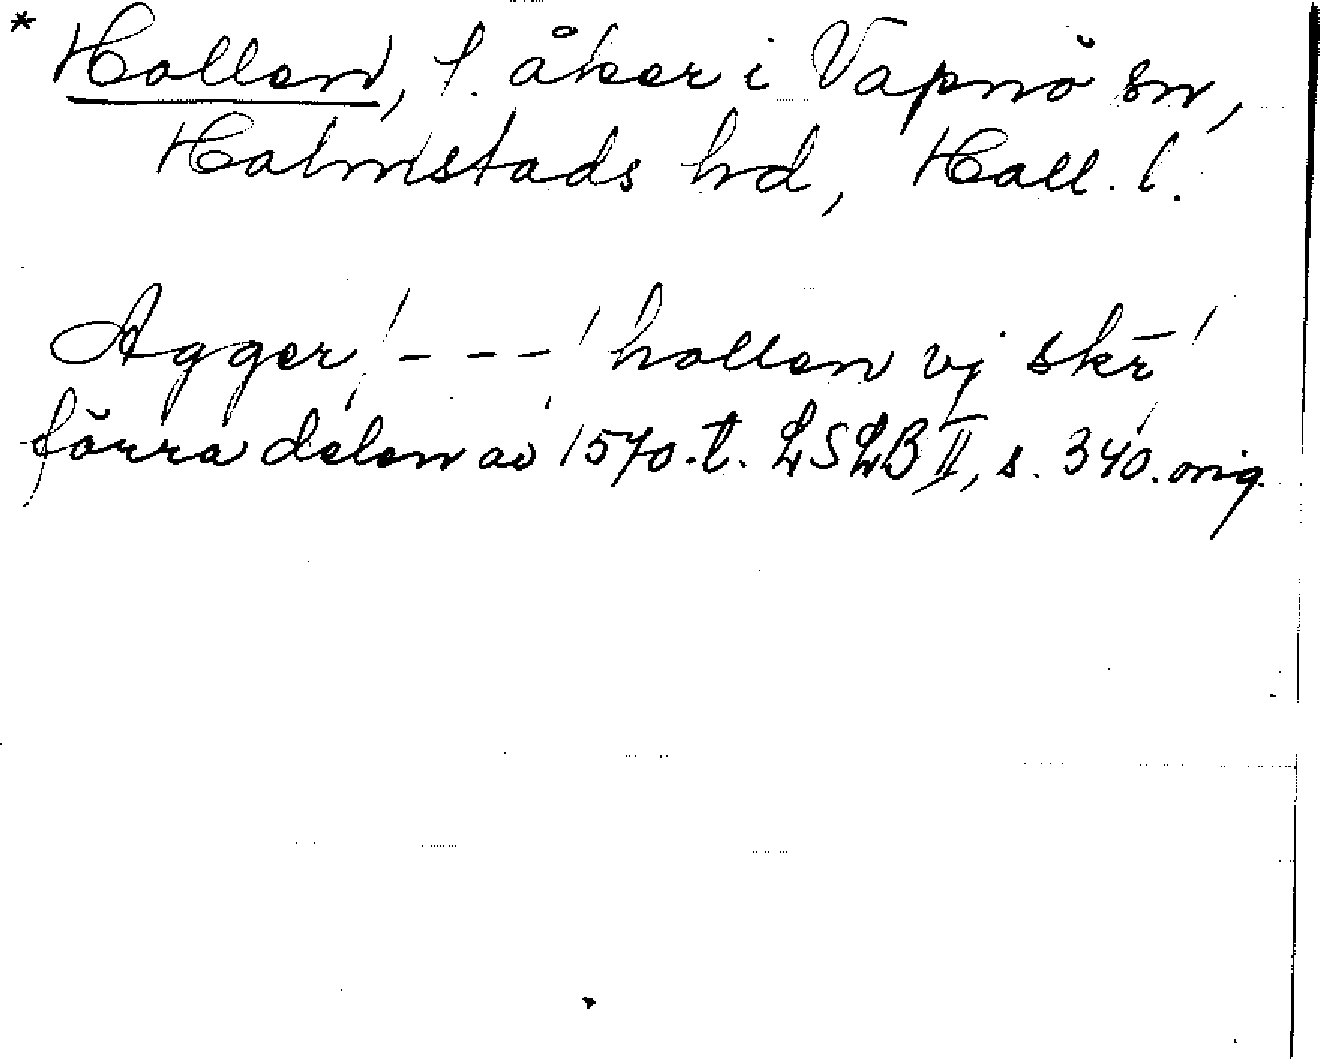 * Hallen, f. åker i Vapnö sn,
Halmstads hd, Hall. l.
Agger ' - - - ' hallen vj skr̄ '
förra delen av 1570.t. LSLB II, s. 340. orig.